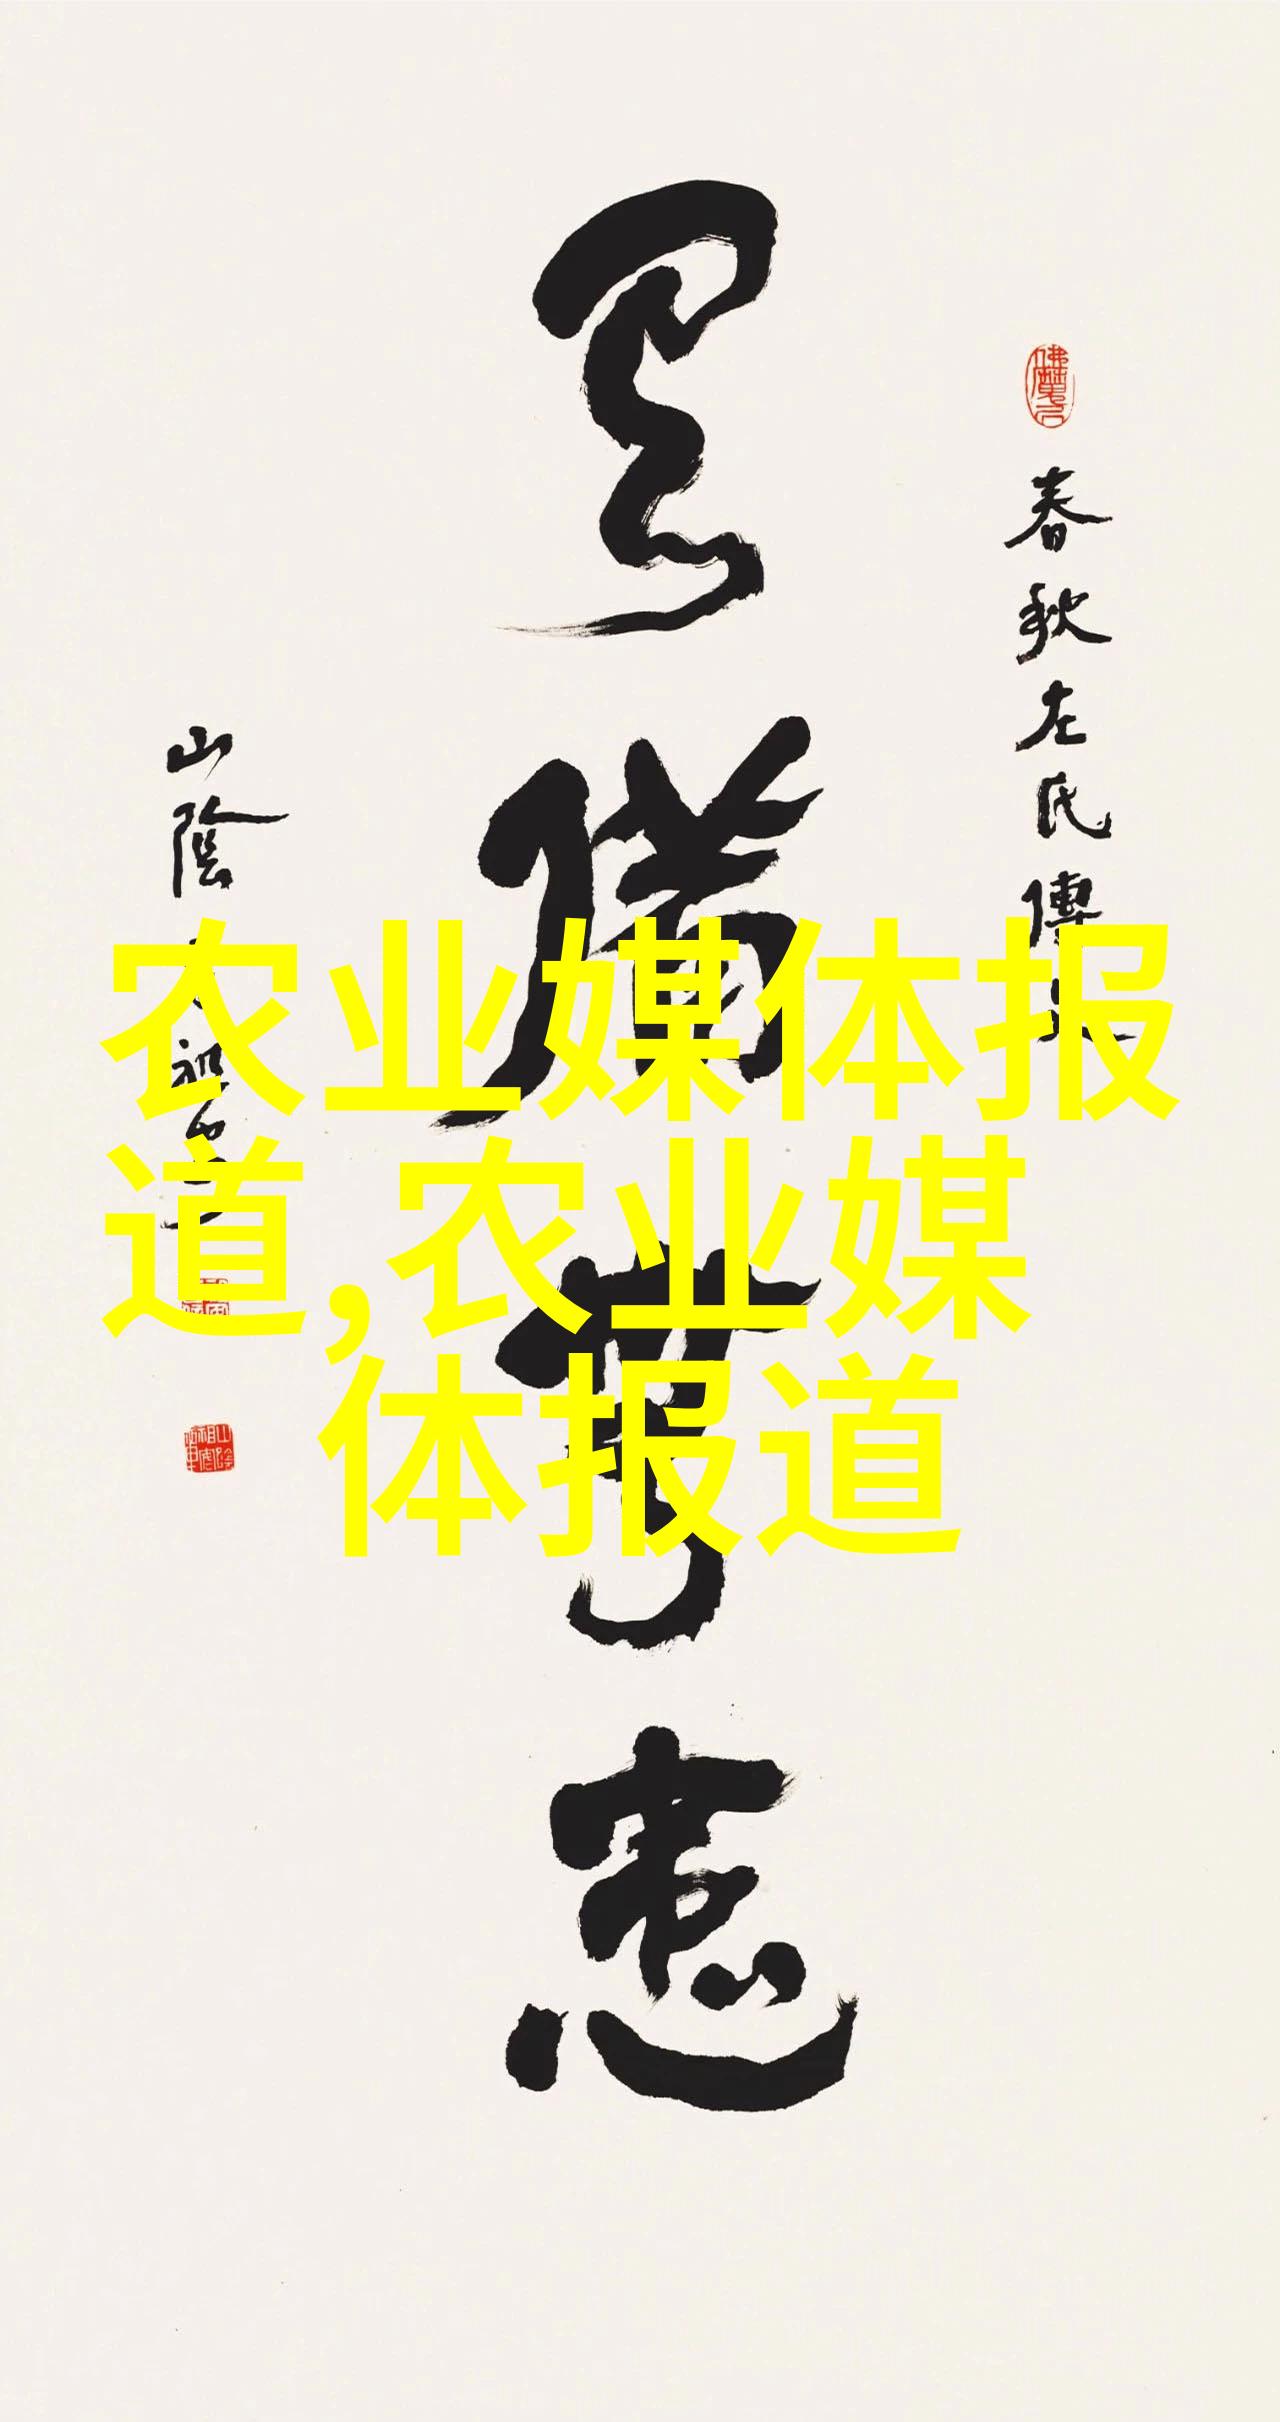 春秋左氏傳
有備無患
山陰
农业媒体报
道,农业媒
体报道